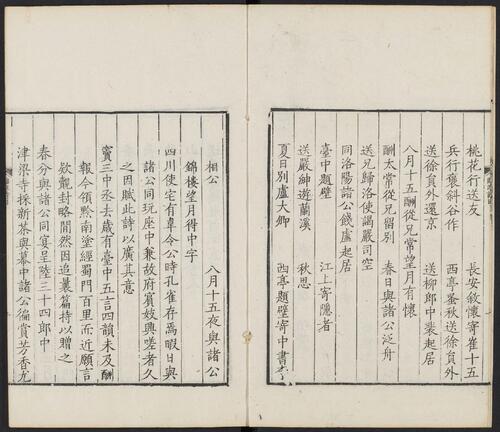 桃花行送友 長安敘懷寄崔十五
兵行褒斜谷作 西亭蚤秋送徐負外
送徐負外還京 送柳郎中裴起居
八月十五酬從兄常望月有懷
酬太常從兄留別 春日與諸公泛舟
送兄歸洛使謁嚴司空
同洛陽諸公餞盧起居
臺中題壁 江上寄隱者
送嚴紳遊蘭溪 秋思
夏日別盧太卿 西亭題壁寄中書李
相公 八月十五夜與諸公
錦樓望月得中字
四川使宅有韋令公時孔雀存焉暇日與
諸公同玩座中兼故府賓妓興嗟者久
之因賦此詩以廣其意
竇三中丞去歲有臺中五言四韻未及酬
報今領黔南塗經蜀門百里而近願言
欵覿封略間然因追曩篇持以贈之
春分與諸公同宴呈陸三十四郎中
津梁寺採新茶與幕中諸公徧賞芳香尤